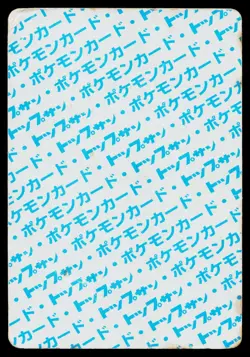 ポケモンカード・
トップサン・ポケモンカード・
ポケモンカード・トップサン・
トップサン・ポケモンカード・
ポケモンカード・トップサン・
トップサン・ポケモンカード・
ポケモンカード・トップサン・
トップサン・ポケモンカード・
ポケモンカード・トップサン・
トップサン・ポケモンカード・
ポケモンカード・トップサン・
トップサン・ポケモンカード・
ポケモンカード・トップサン